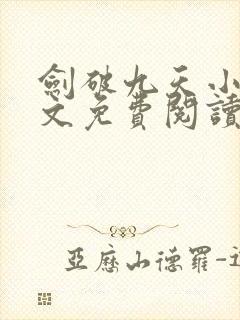 劍破九天小
文免費閱讀
亞歷山德羅-